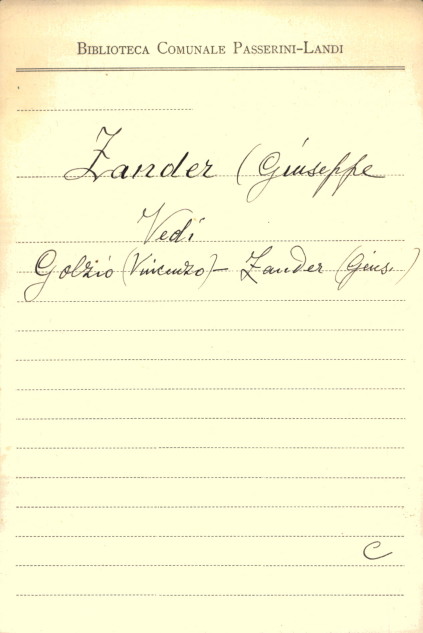 BIBLIOTECA COMUNALE PASSERINI-LANDI
Zander (Giuseppe
Vedi
Golzio (Vincenzo) - Zander (Gius.)
C